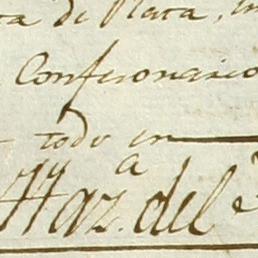 ta de Plata, en
Confesonario
todo en
Haz.a del